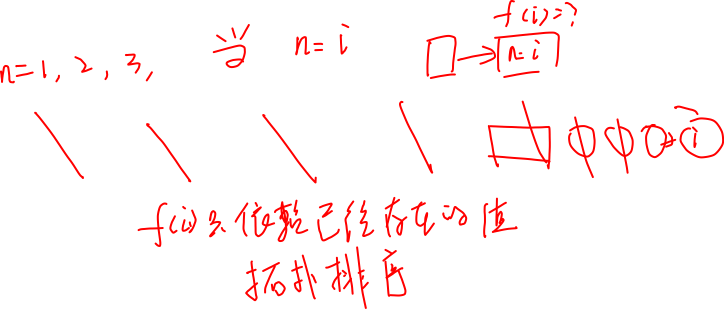 f(i)=?
n=1, 2, 3, 当 n=i n=i
i
f(i)只依赖已经存在的值
拓扑排序